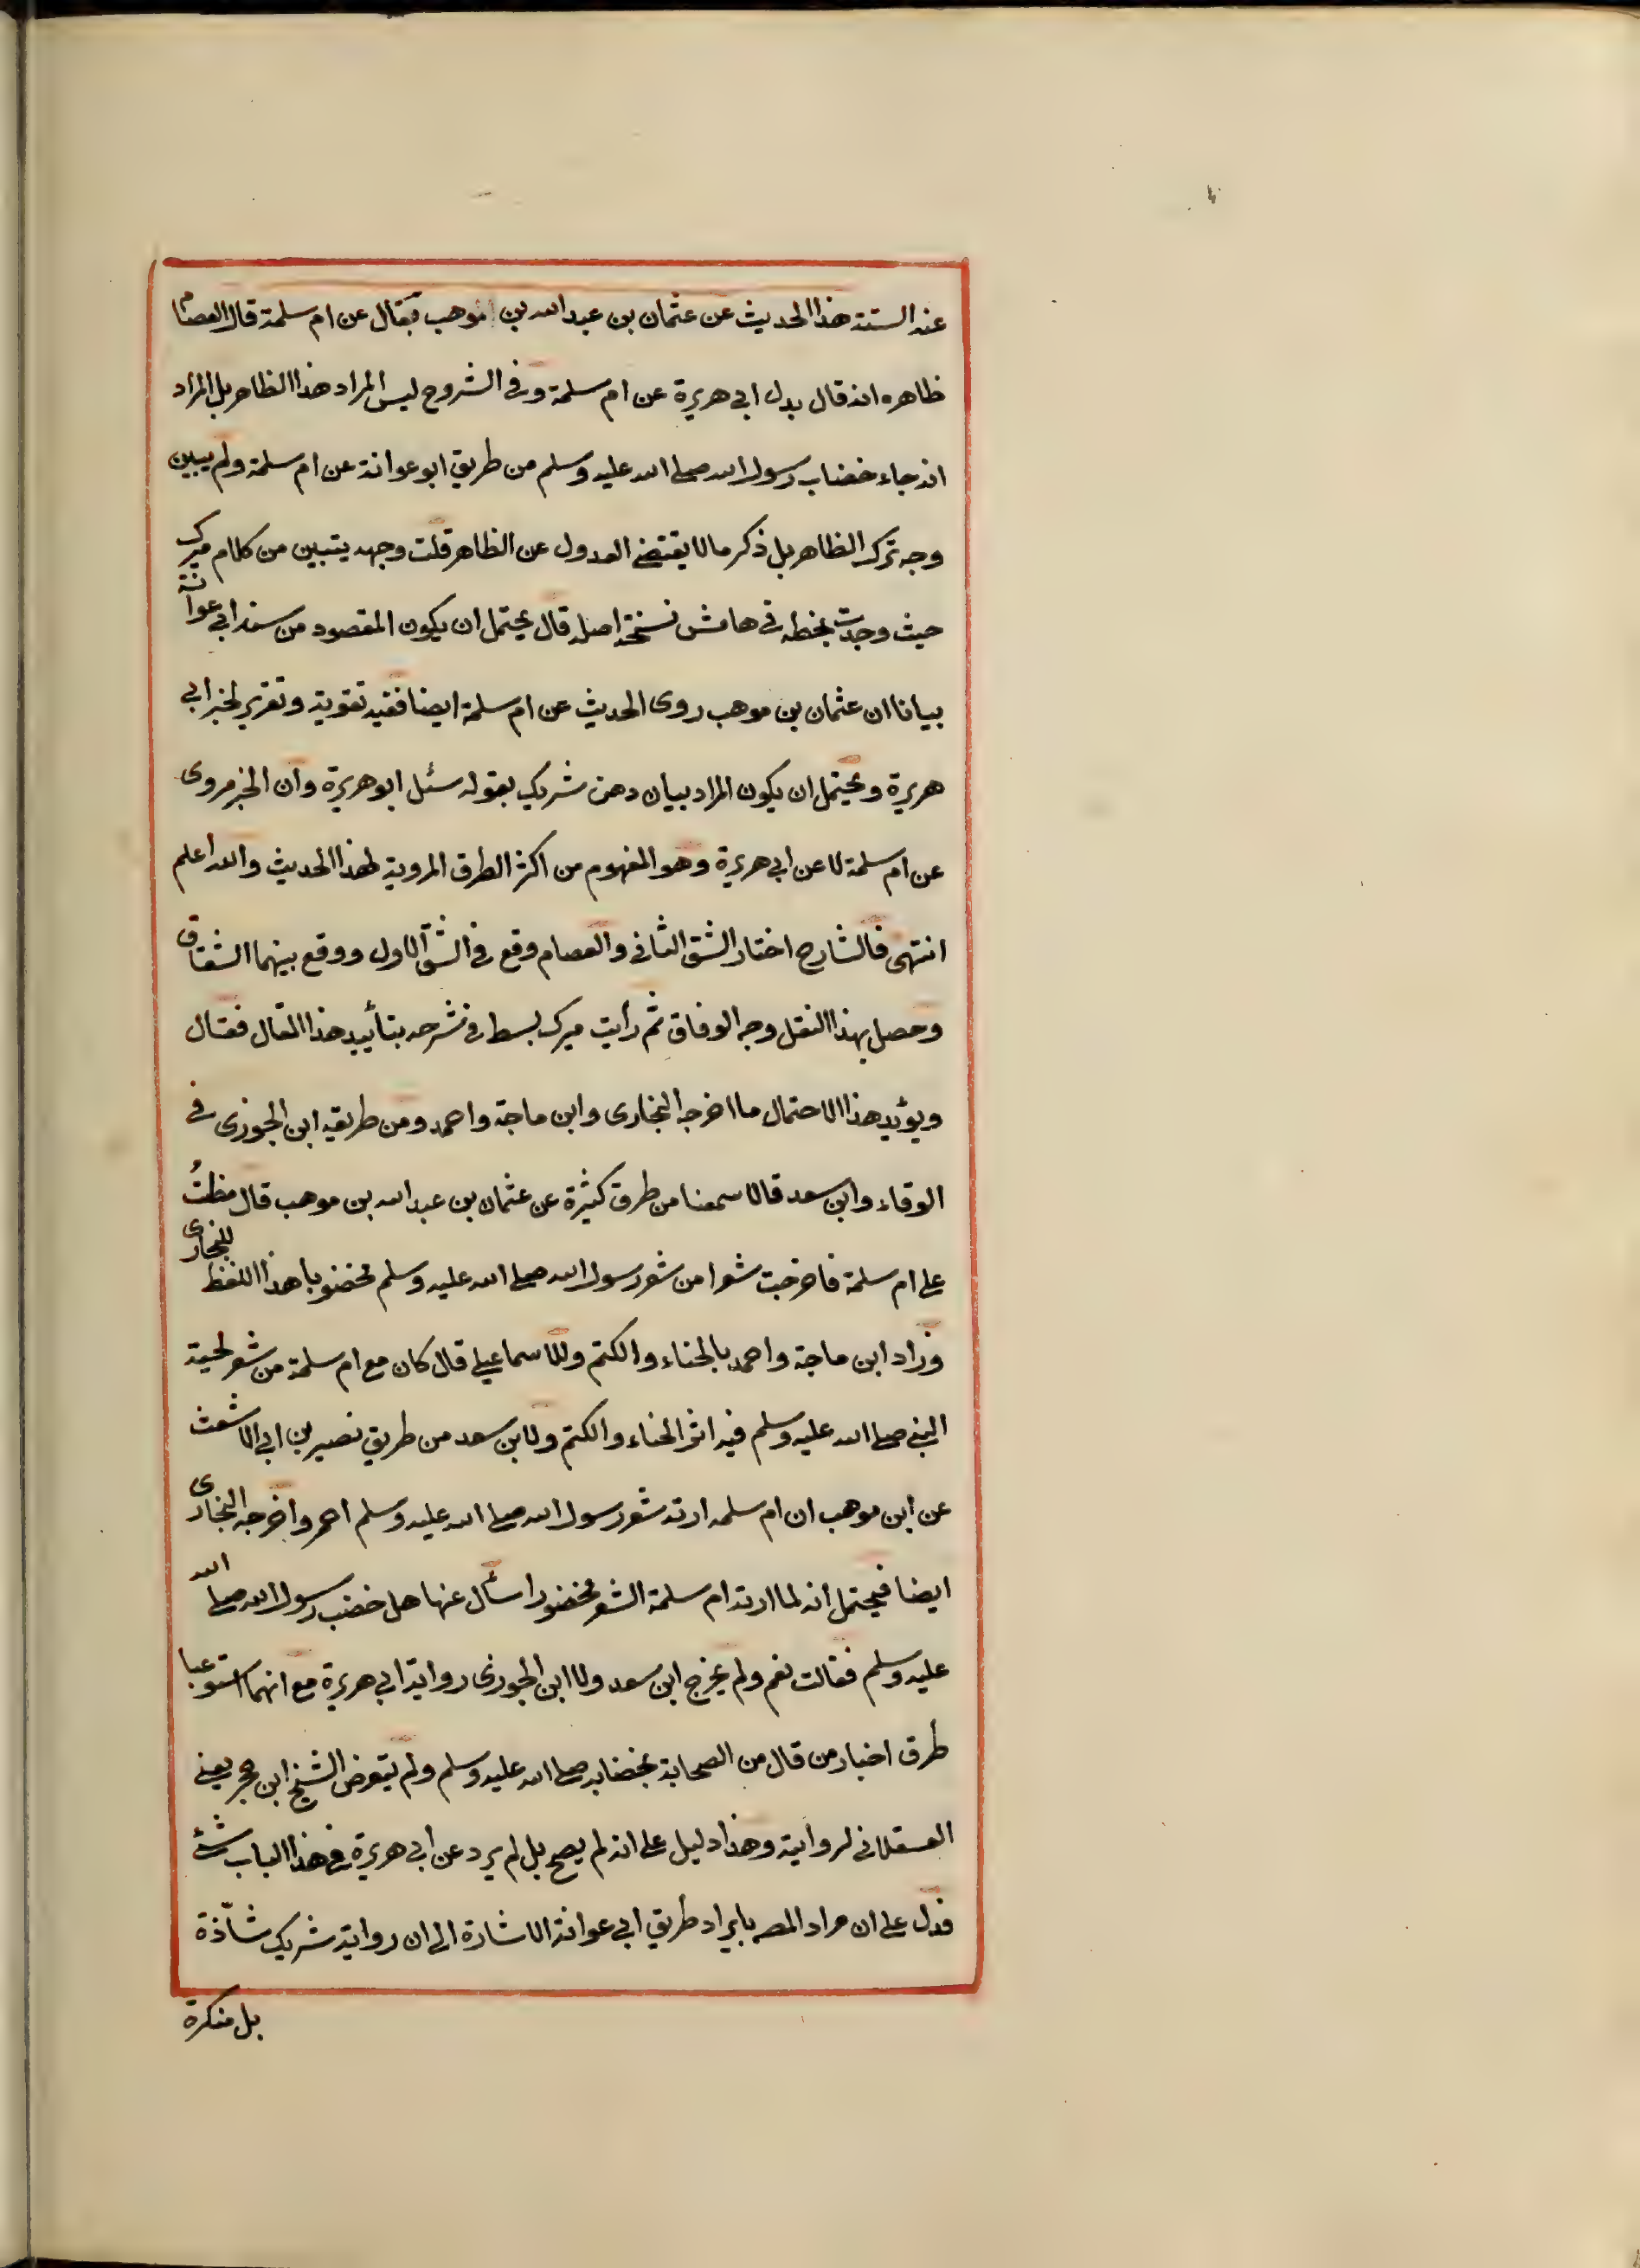 عند الستة هذا الحديث عن عثمان بن عبد الله بن موهب فقال عن ام سلمة قال العصام
ظاهره انه قال بدل ابى هريرة عن ام سلمة وفى الشروح ليس المراد هذا الظاهر بل المراد
انه جاء خضاب رسول الله صلى الله عليه وسلم من طريق ابو عوانة عن ام سلمة ولم يبين
وجه ترك الظاهر بل ذكر ما لا يقتضى العدول عن الظاهر قلت وجهه يتبين من كلام ميرك
حيث وجدت بخطه فى هامش نسخة اصله قال يحتمل ان يكون المقصود من سند ابى عوانة
بيانا ان عثمان بن موهب روى الحديث عن ام سلمة ايضا ففيه تقوية وتقرير لخبر ابى
هريرة ويحتمل ان يكون المراد بيان وهن شريك بقوله سئل ابو هريرة وان الخبر مروى
عن ام سلمة لا عن ابى هريرة وهو المفهوم من اكثر الطرق المروية لهذا الحديث والله اعلم
انتهى فالشارح اختار الشق الثانى والعصام وقع فى الشق الاول ووقع بينهما الشقاق
وحصل بهذا النقل وجه الوفاق ثم رأيت ميرك بسط فى شرحه بتأييد هذا المقال فقال
ويؤيد هذا الاحتمال ما اخرجه البخارى وابن ماجة واحمد ومن طريقه ابن الجوزى فى
الوفاء وابن سعد قالا سمعنا من طرق كثيرة عن عثمان بن عبد الله بن موهب قال دخلتُ
على ام سلمة فاخرجت شعرا من شعر رسول الله صلى الله عليه وسلم مخضوبا هذا اللفظ للبخارى
وزاد ابن ماجة واحمد بالحناء والكتم وللاسماعيلى قال كان مع ام سلمة من شعر لحية
النبى صلى الله عليه وسلم فيه اثر الحناء والكتم ولابن سعد من طريق نصير بن ابى الاشعث
عن ابن موهب ان ام سلمه ارته شعر رسول الله صلى الله عليه وسلم احمر واخرجه البخارى
ايضا فيحتمل انه لما ارته ام سلمة الشعر مخضوبا سأل عنها هل خضب رسول الله صلى الله
عليه وسلم فقالت نعم ولم يخرج ابن سعد ولا ابن الجوزى رواية ابى هريرة مع انهما استوعبا
طرق اخبار من قال من الصحابة بخضابه صلى الله عليه وسلم ولم يتعرض الشيخ ابن حجر يعنى
العسقلانى لروايته وهذا دليل على انه لم يصح بل لم يرد عن ابى هريرة فى هذا الباب شئ
فدل على ان مراد المص بايراد طريق ابى عوانة الاشارة الى ان رواية شريك شاذّة
بل منكرة